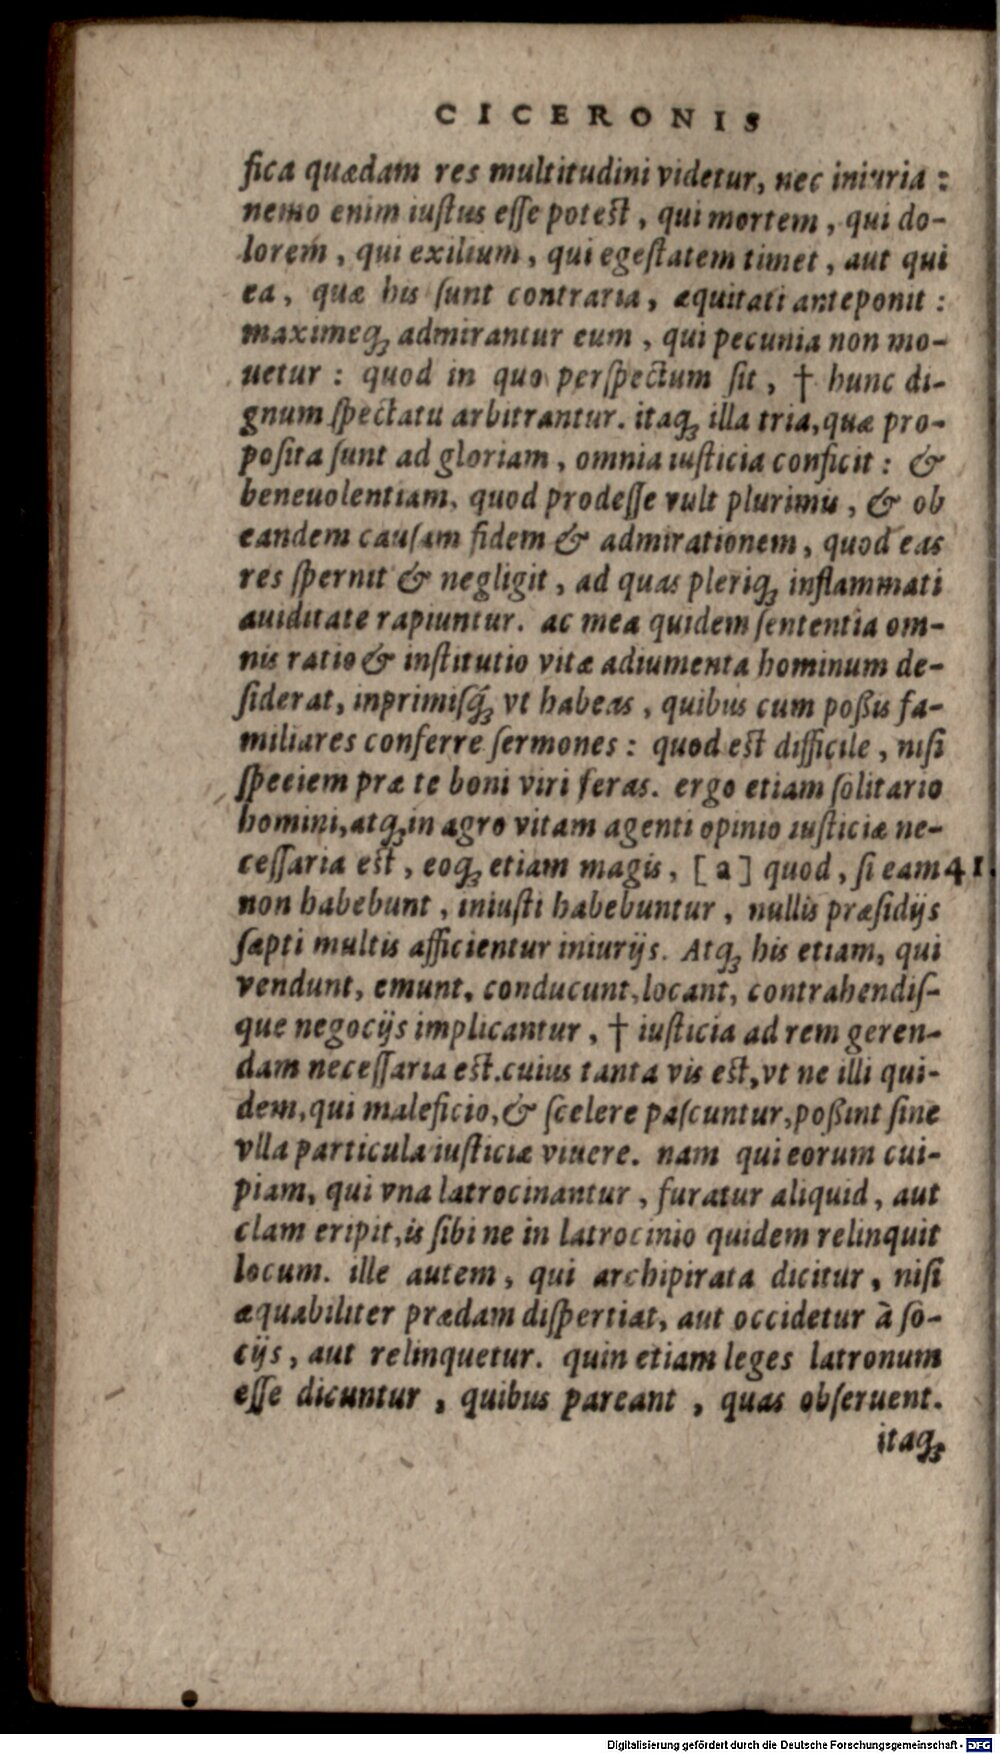 CICERONIS
fica quædam res multitudini videtur, nec iniuria:
nemo enim iuſtus eſſe poteſt, qui mortem, qui do-
lorem, qui exilium, qui egeſtatem timet, aut qui
ea, quæ his ſunt contraria, æquitati anteponit:
maximeq́ꝫ admirantur eum, qui pecunia non mo-
uetur: quod in quo perſpectum ſit, † hunc di-
gnum ſpectatu arbitrantur. itaqꝫ illa tria, quæ pro-
poſita ſunt ad gloriam, omnia iuſticia conficit: &
beneuolentiam, quod prodeſſe vult plurimis, & ob
eandem cauſam fidem & admirationem, quod eas
res ſpernit & negligit, ad quas pleriqꝫ inflammati
auiditate rapiuntur. ac mea quidem ſententia om-
nis ratio & inſtitutio vitæ adiumenta hominum de-
ſiderat, inprimiſq́ꝫ vt habeas, quibus cum poßis fa-
miliares conferre ſermones: quod eſt difficile, niſi
ſpeciem præ te boni viri feras. ergo etiam ſolitario
homini, atqꝫ in agro vitam agenti opinio iuſticiæ ne-
ceſſaria eſt, eoqꝫ etiam magis, [a] quod, ſi eam 41.
non habebunt, iniuſti habebuntur, nullis præſidijs
ſæpti multis afficientur iniurijs. Atqꝫ his etiam, qui
vendunt, emunt, conducunt, locant, contrahendiſ-
que negocijs implicantur, † iuſticia ad rem geren-
dam neceſſaria eſt. cuius tanta vis eſt, vt ne illi qui-
dem, qui maleficio, & ſcelere paſcuntur, poßint ſine
vlla particula iuſticiæ viuere. nam qui eorum cui-
piam, qui vna latrocinantur, furatur aliquid, aut
clam eripit, is ſibi ne in latrocinio quidem relinquit
locum. ille autem, qui archipirata dicitur, niſi
æquabiliter prædam diſpertiat, aut occidetur à ſo-
cijs, aut relinquetur. quin etiam leges latronum
eſſe dicuntur, quibus pareant, quas obſeruent.
itaqꝫ
Digitalisierung gefördert durch die Deutsche Forschungsgemeinschaft - DFG